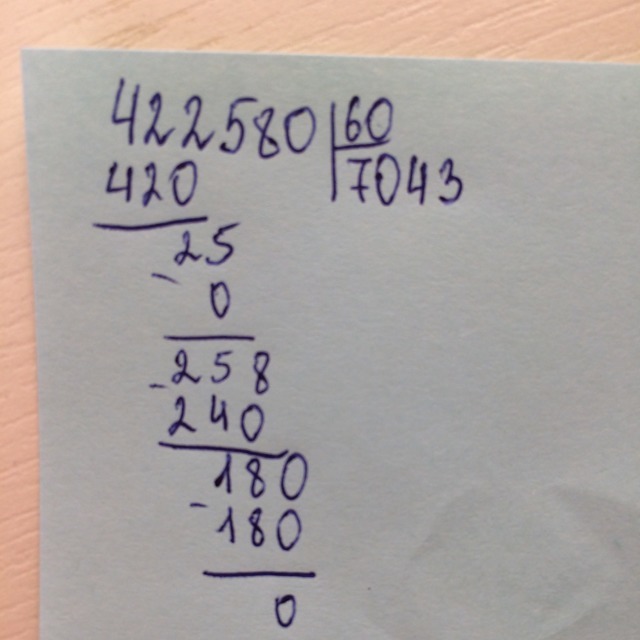 422580 60
420 7043
25
- 0
258
- 240
180
- 180
0